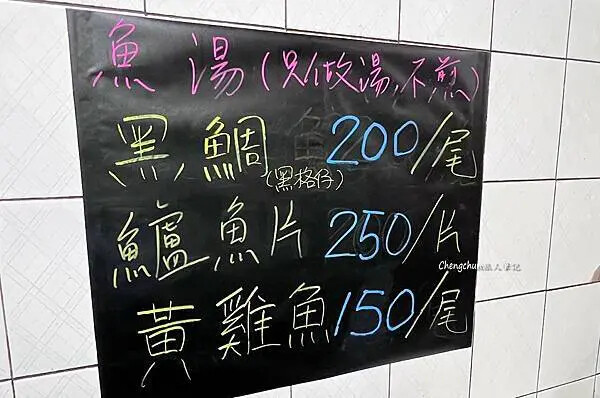 魚湯(只做湯,不煎)
黑鯛 200/尾
(黑格仔)
鱸魚片250/片
Chengchu的旅人筆記
黃雞魚150/尾